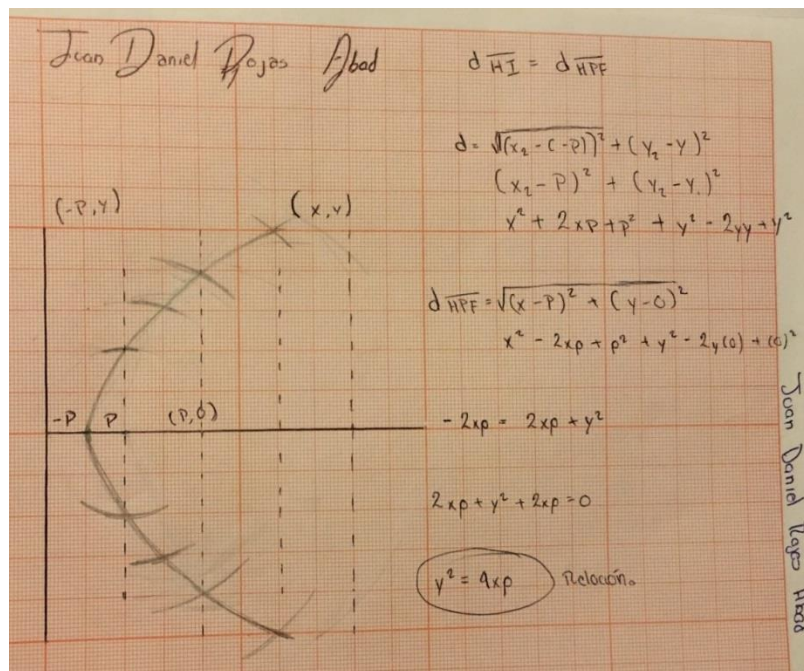 Juan Daniel Rojas Abad
(-P,Y)
(x,y)
-P
P
(P,0)
d HI = d HPF
d = √(x₂-(-P))² + (y₂-y)²
(x₂-P)² + (y₂-y.)²
x² + 2xp + p² + y² - 2yy + y²
d HPF = √(x-P)² + (y-0)²
x² - 2xp + p² + y² - 2y(0) + (0)²
-2xp = 2xp + y²
2xp + y² + 2xp = 0
y² = 4xp Relación.
Juan Daniel Rojas Abad